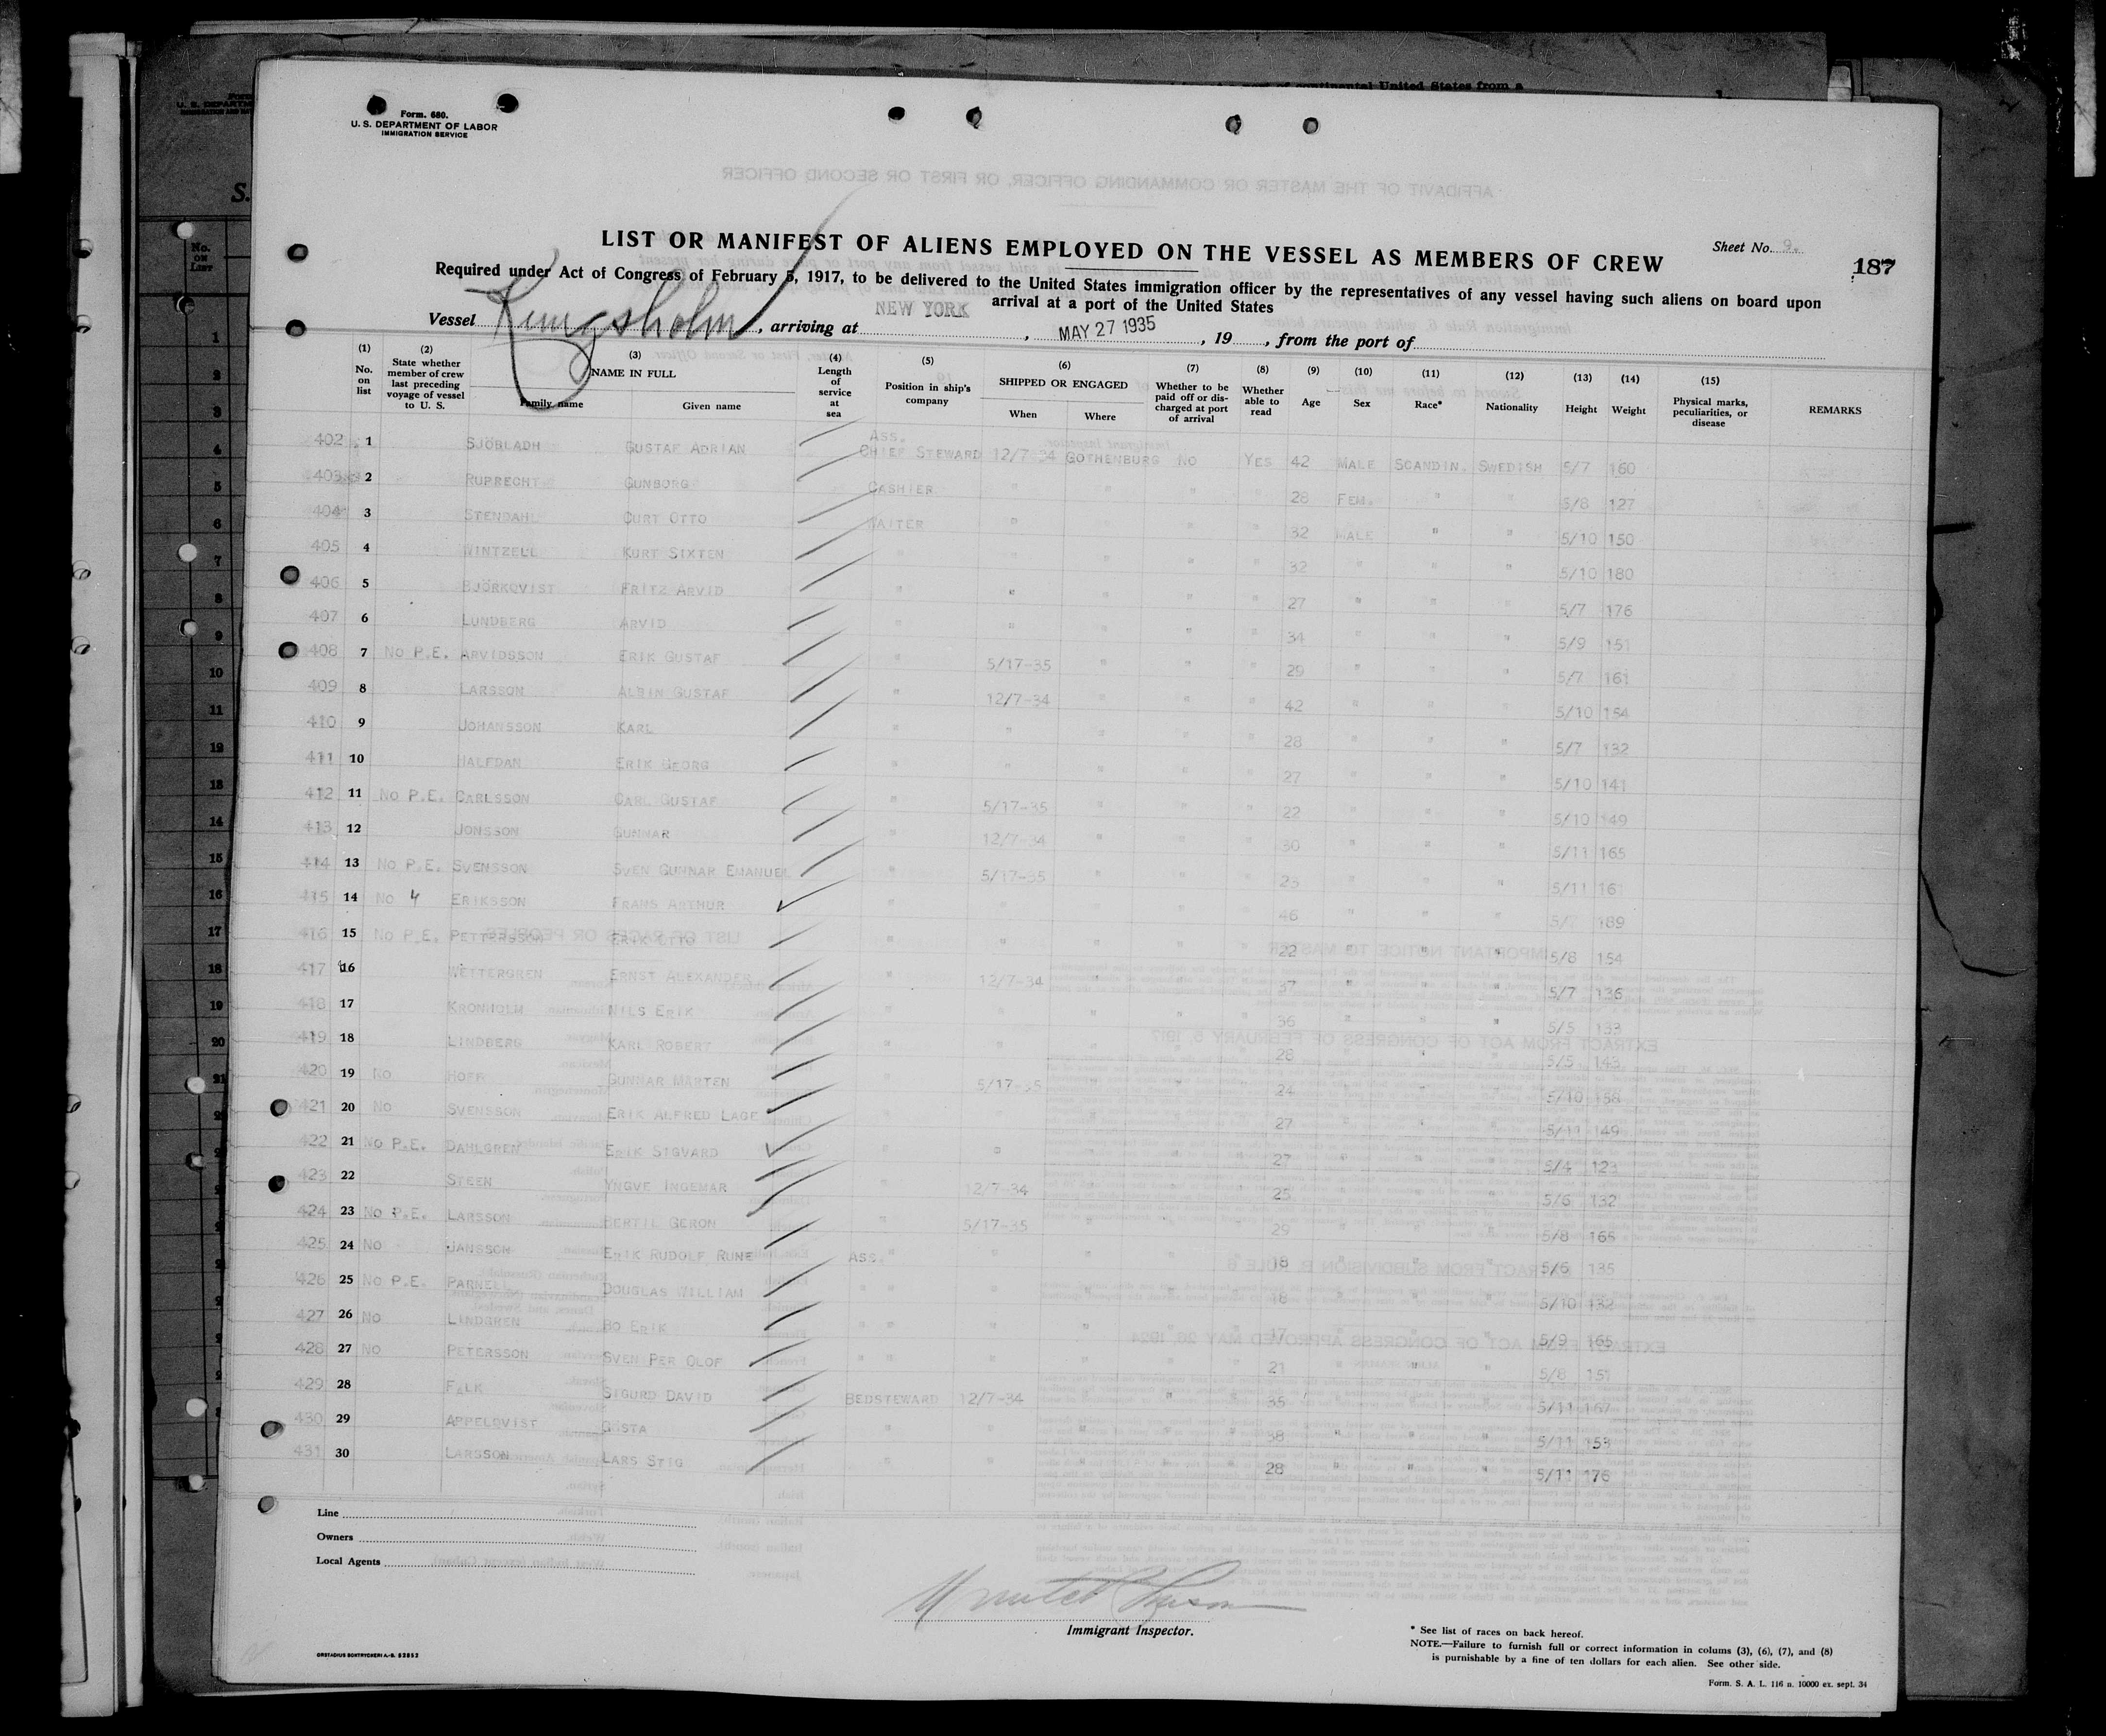 Form. 680.
U. S. DEPARTMENT OF LABOR
IMMIGRATION SERVICE
LIST OR MANIFEST OF ALIENS EMPLOYED ON THE VESSEL AS MEMBERS OF CREW
Sheet No. 9.
187
Required under Act of Congress of February 5, 1917, to be delivered to the United States immigration officer by the representatives of any vessel having such aliens on board upon
arrival at a port of the United States
Vessel Kungsholm, arriving at NEW YORK, MAY 27 1935, 19, from the port of
(1) No. on list (2) State whether member of crew last preceding voyage of vessel to U. S. (3) NAME IN FULL Family name Given name (4) Length of service at sea (5) Position in ship's company (6) SHIPPED OR ENGAGED When Where (7) Whether to be paid off or discharged at port of arrival (8) Whether able to read (9) Age (10) Sex (11) Race* (12) Nationality (13) Height (14) Weight (15) Physical marks, peculiarities, or disease REMARKS
402 1 SJÖBLADH GUSTAF ADRIAN ASS. CHIEF STEWARD 12/7-34 GOTHENBURG NO YES 42 MALE SCANDIN. SWEDISH 5/7 160
403 2 RUPRECHT GUNBORG CASHIER " " " " 28 FEM. " " 5/8 127
404 3 STENDAHL CURT OTTO WAITER " " " " 32 MALE " " 5/10 150
405 4 WINTZELL KURT SIXTEN " " " " " 32 " " " 5/10 180
406 5 BJÖRKQVIST FRITZ ARVID " " " " " 27 " " " 5/7 176
407 6 LUNDBERG ARVID " " " " " 34 " " " 5/9 151
408 7 NO P.E. ARVIDSSON ERIK GUSTAF " 5/17-35 " " " 29 " " " 5/7 161
409 8 LARSSON ALBIN GUSTAF " 12/7-34 " " " 42 " " " 5/10 154
410 9 JOHANSSON KARL " " " " " 28 " " " 5/7 132
411 10 HALFDAN ERIK GEORG " " " " " 27 " " " 5/10 141
412 11 NO P.E. CARLSSON CARL GUSTAF " 5/17-35 " " " 22 " " " 5/10 149
413 12 JONSSON GUNNAR " 12/7-34 " " " 30 " " " 5/11 165
414 13 NO P.E. SVENSSON SVEN GUNNAR EMANUEL " 5/17-35 " " " 23 " " " 5/11 161
415 14 NO 4 ERIKSSON FRANS ARTHUR " " " " " 46 " " " 189
416 15 NO P.E. PETTERSSON ERIK OTTO " " " " " 22 " " " 5/8 154
417 16 WETTERGREN ERNST ALEXANDER " 12/7-34 " " " 37 " " " 5/7 136
418 17 KRONHOLM NILS ERIK " " " " " 36 " " " 5/5 133
419 18 LINDBERG KARL ROBERT " " " " " 28 " " " 5/5 143
420 19 NO HOFF GUNNAR MARTEN " 5/17-35 " " " 24 " " " 5/10 158
421 20 NO SVENSSON ERIK ALFRED LAGE " " " " " 27 " " " 5/11 149
422 21 NO P.E. DAHLGREN ERIK SIGVARD " " " " " 27 " " " 5/4 123
423 22 STEEN YNGVE INGEMAR " 12/7-34 " " " 25 " " " 5/6 132
424 23 NO P.E. LARSSON BERTIL GERON " 5/17-35 " " " 29 " " " 5/8 165
425 24 NO JANSSON ERIK RUDOLF RUNE ASS. " " " " " 18 " " " 5/6 135
426 25 NO P.E. PARNELL DOUGLAS WILLIAM " " " " " " 18 " " " 5/10 132
427 26 NO LINDGREN BO ERIK " " " " " " 17 " " " 5/9 165
428 27 NO PETERSSON SVEN PER OLOF " " " " " " 21 " " " 5/8 151
429 28 FALK SIGURD DAVID BEDSTEWARD 12/7-34 " " " 35 " " " 5/11 167
430 29 APPELQVIST GÖSTA " " " " " 38 " " " 5/11 153
431 30 LARSSON LARS STIG " " " " " 28 " " " 5/11 176
Line
Owners
Local Agents
Immigrant Inspector.
* See list of races on back hereof.
NOTE.—Failure to furnish full or correct information in colums (3), (6), (7), and (8)
is purnishable by a fine of ten dollars for each alien. See other side.
ORSTADIUS BOKTRYCKERI A.-B. 52553
Form. S. A. L. 116 n. 10000 ex. sept. 34